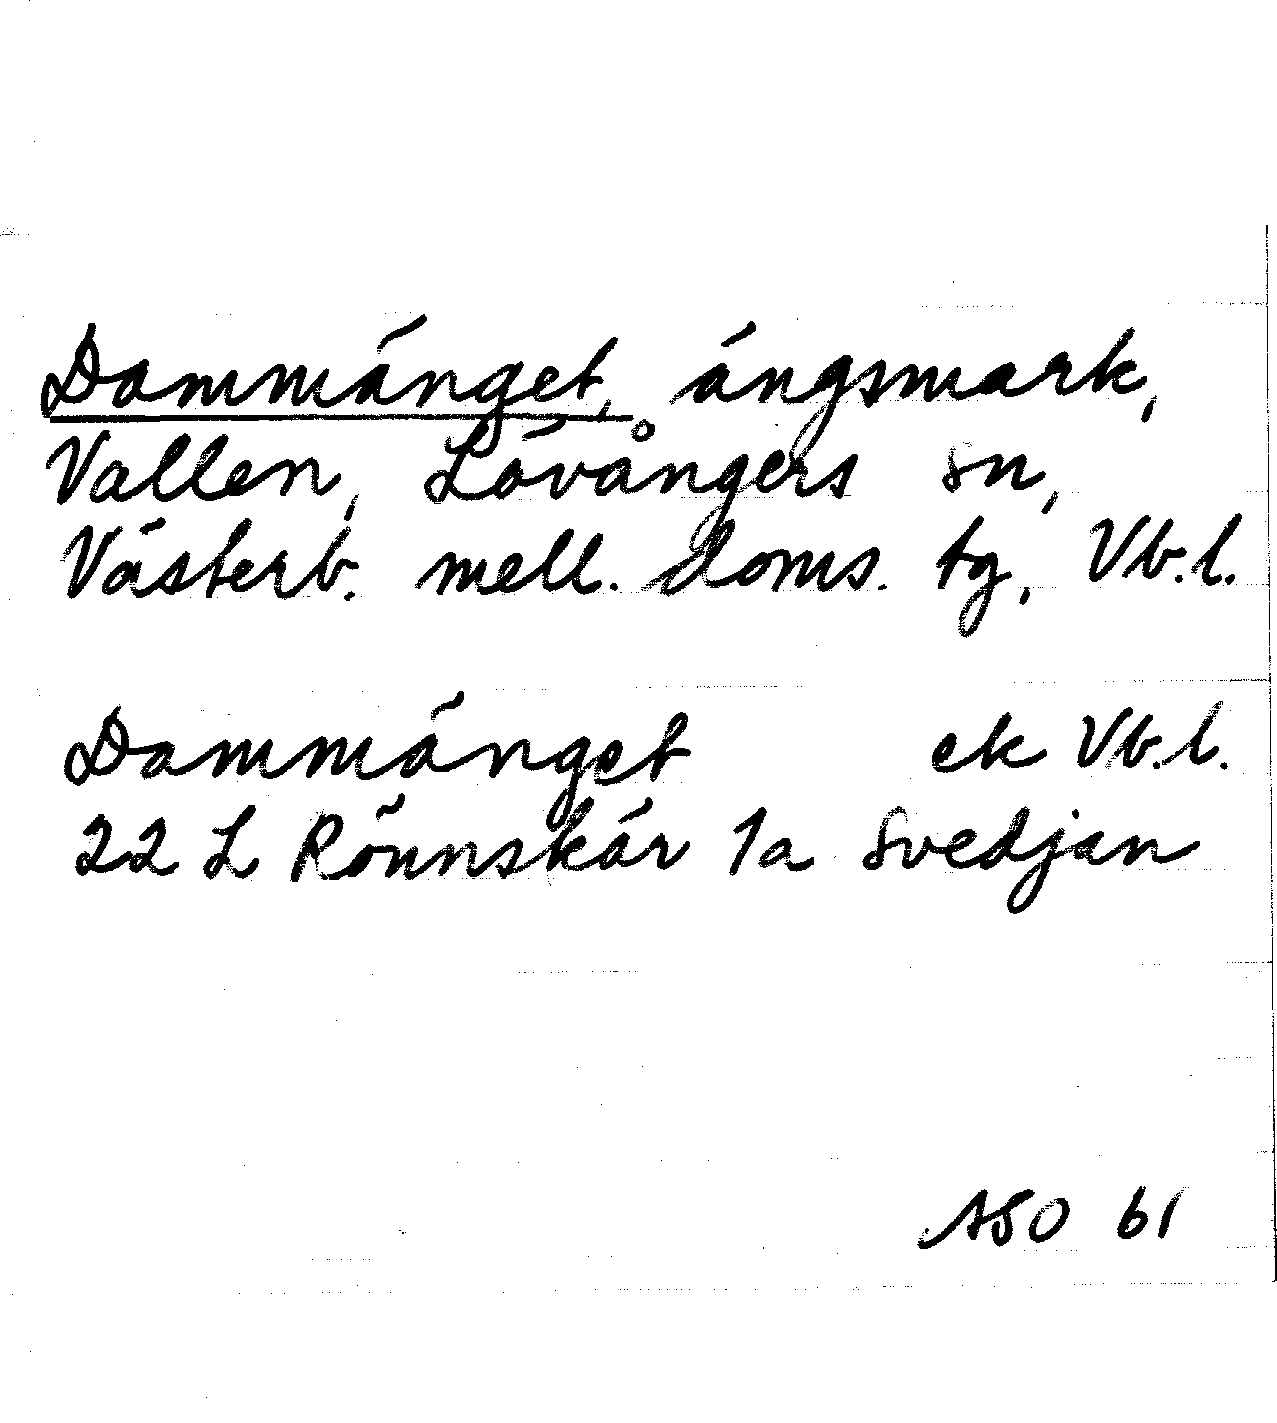 Dammänget, ängsmark,
Vallen, Lövångers sn,
Västerb. mell. doms. tg, Vb.l.
Dammänget ek Vb.l.
22 L Rönnskär 1a Svedjan
ASO 61